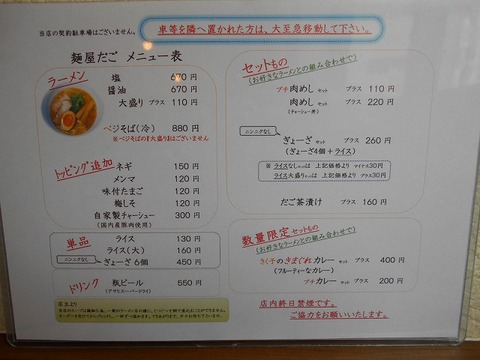 当店の契約駐車場はございません。
車等を隣へ置かれた方は、大至急移動して下さい。
麺屋だご メニュー表
ラーメン
塩 670円
醤油 670円
大盛り プラス 110円
ベジそば(冷) 880円
※ベジそばの『大盛り』はございません
トッピング追加
ネギ 150円
メンマ 120円
味付たまご 120円
梅しそ 120円
自家製チャーシュー 300円
(国内産豚肉使用)
単品
ライス 130円
ライス(大) 160円
ニンニクなし
ぎょーざ 6個 450円
ドリンク
瓶ビール 550円
(アサヒスーパードライ)
店主より
セットもの
(お好きなラーメンとの組み合わせで)
プチ肉めし セット プラス 110円
肉めし セット プラス 220円
(チャーシュー丼)
ニンニクなし
ぎょーざ セット プラス 260円
(ぎょーざ4個+ライス)
※ライスなしセットは 上記価格より マイナス30円
ライス大盛りセットは 上記価格より プラス30円
だご茶漬け プラス 160円
数量限定セットもの
(お好きなラーメンとの組み合わせで)
きく子のきまぐれカレー セット プラス 400円
(フルーティーなカレー)
プチカレー セット プラス 200円
店内終日禁煙です。
ご協力をお願いいたします。